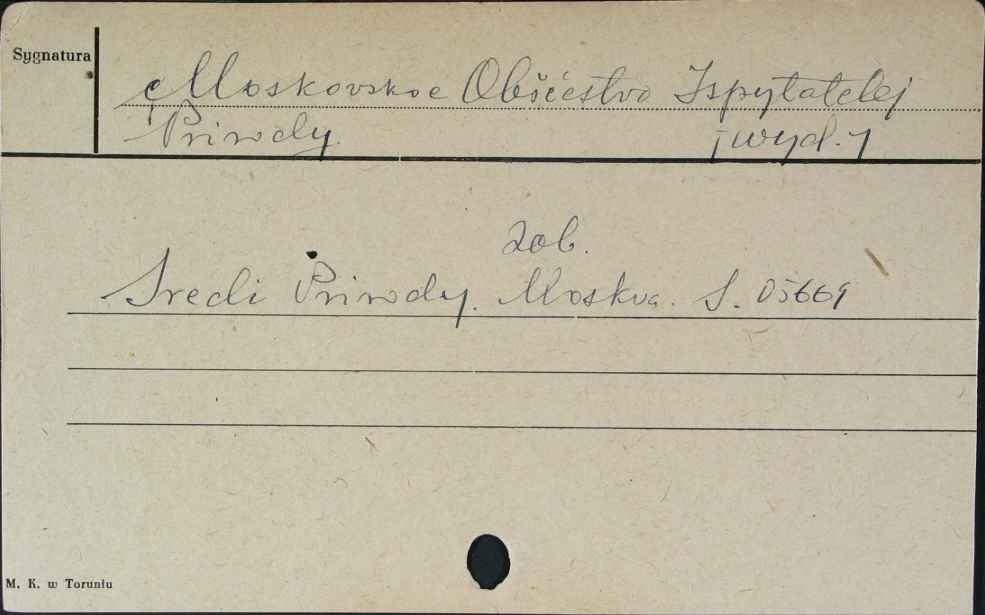 Sygnatura
Moskovskoe Obščestvo Ispytatelej
Prirody. [wyd.]
zob.
Sredi Prirody. Moskva. S. 05669
M. K. w Toruniu